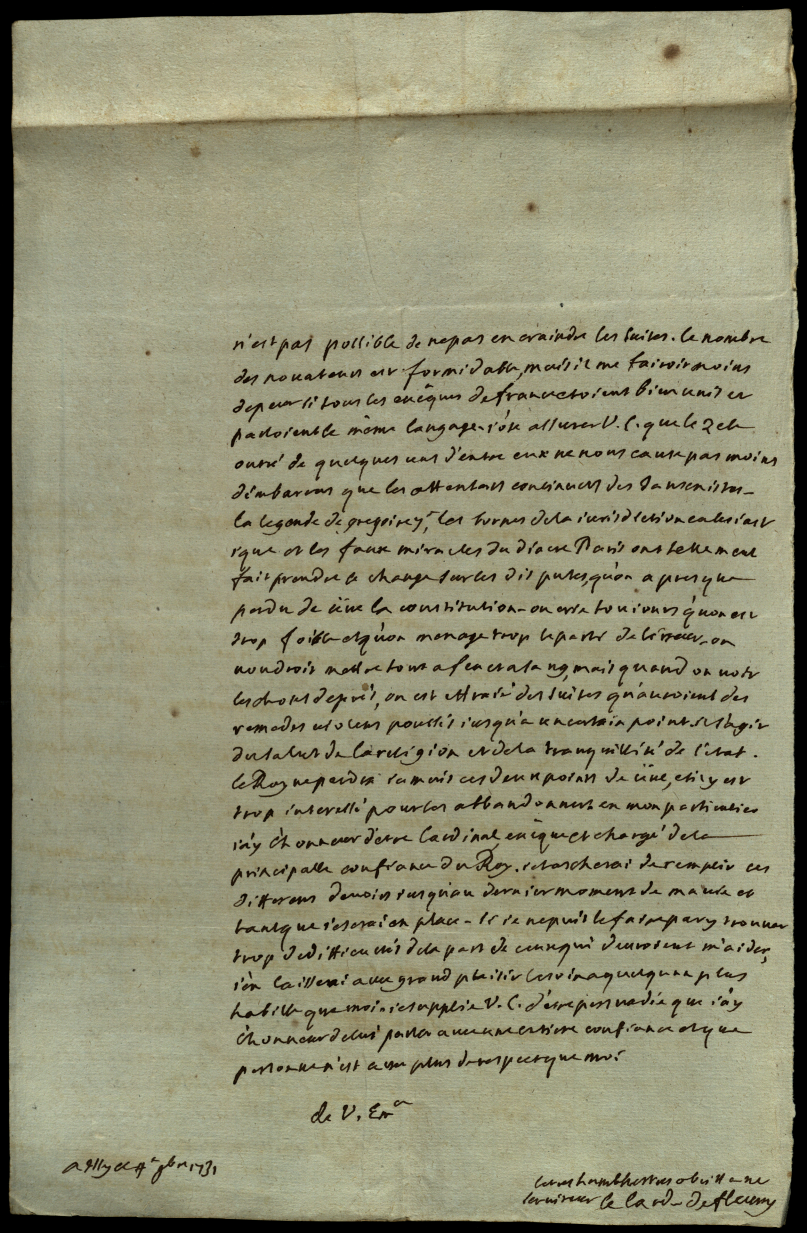 n'est pas possible de ne pas en craindre les suites. le nombre
des novateurs est formidable, mais il me fairoit moins
de peur si tous les evêques de france etoient bien unis et
parloient le même langage. j'ose assurer V. E. que le zele
outré de quelques uns d'entre eux ne nous cause pas moins
d'embarras que les attentats continuels des Jansenistes.
la legende de gregoire 7e, les bornes de la jurisdiction eclesiast
ique et les faux miracles du diacre Paris ont tellement
fait prendre le change sur les disputes, qu'on a presque
perdu de vüe la constitution. on crie toujours qu'on est
trop foible et qu'on menage trop le parti de l'erreur. on
voudroit mettre tout a feu et a sang, mais quand on voit
les choses de près, on est effraié des suites qu'auroient des
remedes violens poussés jusqu'a un certain point. il s'agit
du salut de la religion et de la tranquillité de l'etat.
le Roy ne perdra jamais ces deux points de vüe, et il y est
trop interessé pour les abbandonner. en mon particulier
j'ay l'honneur d'etre Cardinal, evêque et chargé de la
principalle confiance du Roy. je tascherai de remplir ces
differens devoirs jusqu'au dernier moment de ma vie et
tant que je serai en place. si je ne puis le faire par y trouver
trop de difficultés de la part de ceux qui devroient m'aider,
j'en laisserai avec grand plaisir le soin a quelqu'un plus
habille que moi. je supplie V. E. d'etre persuadée que j'ay
l'honneur de lui parler avec une entiere confiance et que
personne n'est avec plus de respect que moi
de V. Em.ce
a ce 9bre 1731
le tres humble et tres obeissane
serviteur le Card. de fleury